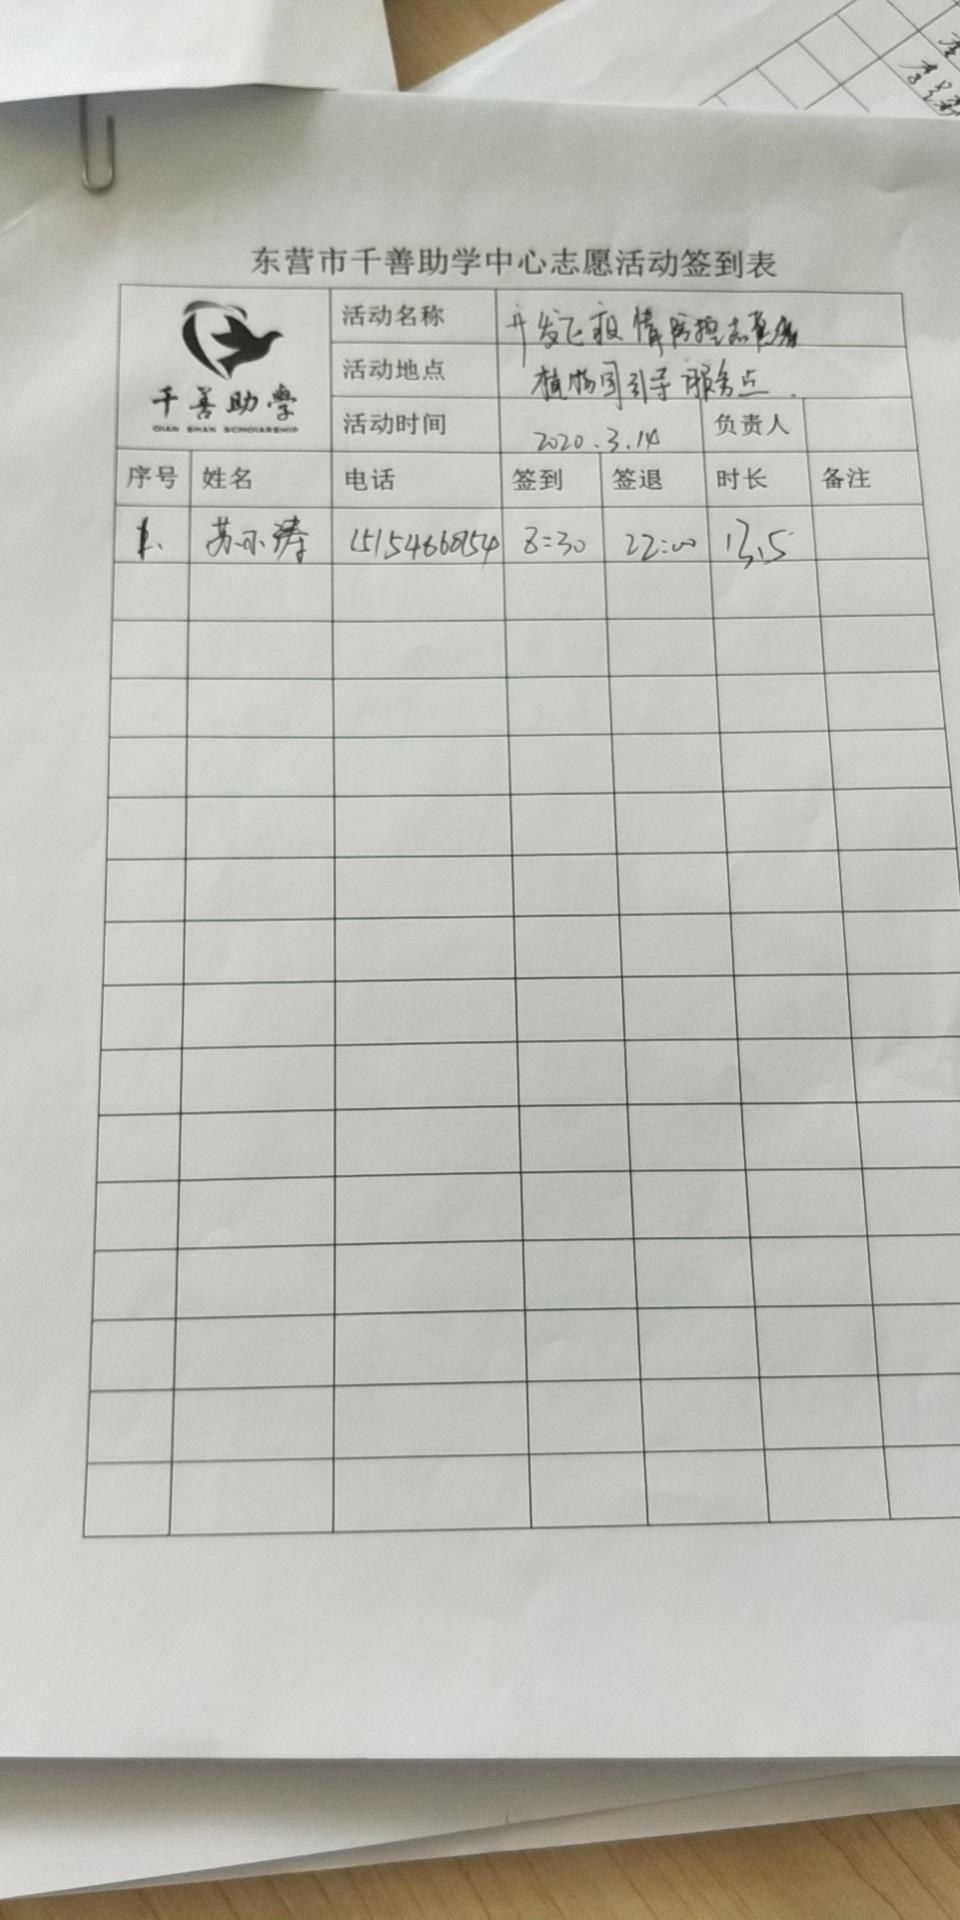 东营市千善助学中心志愿活动签到表
千善助学
QIAN SHAN SCHOLARSHIP
活动名称 开发区疫情防控志愿者
活动地点 植物园引导服务点.
活动时间 2020.3.14 负责人
序号 姓名 电话 签到 签退 时长 备注
1. 苏小涛 8:30 22:00 13.5